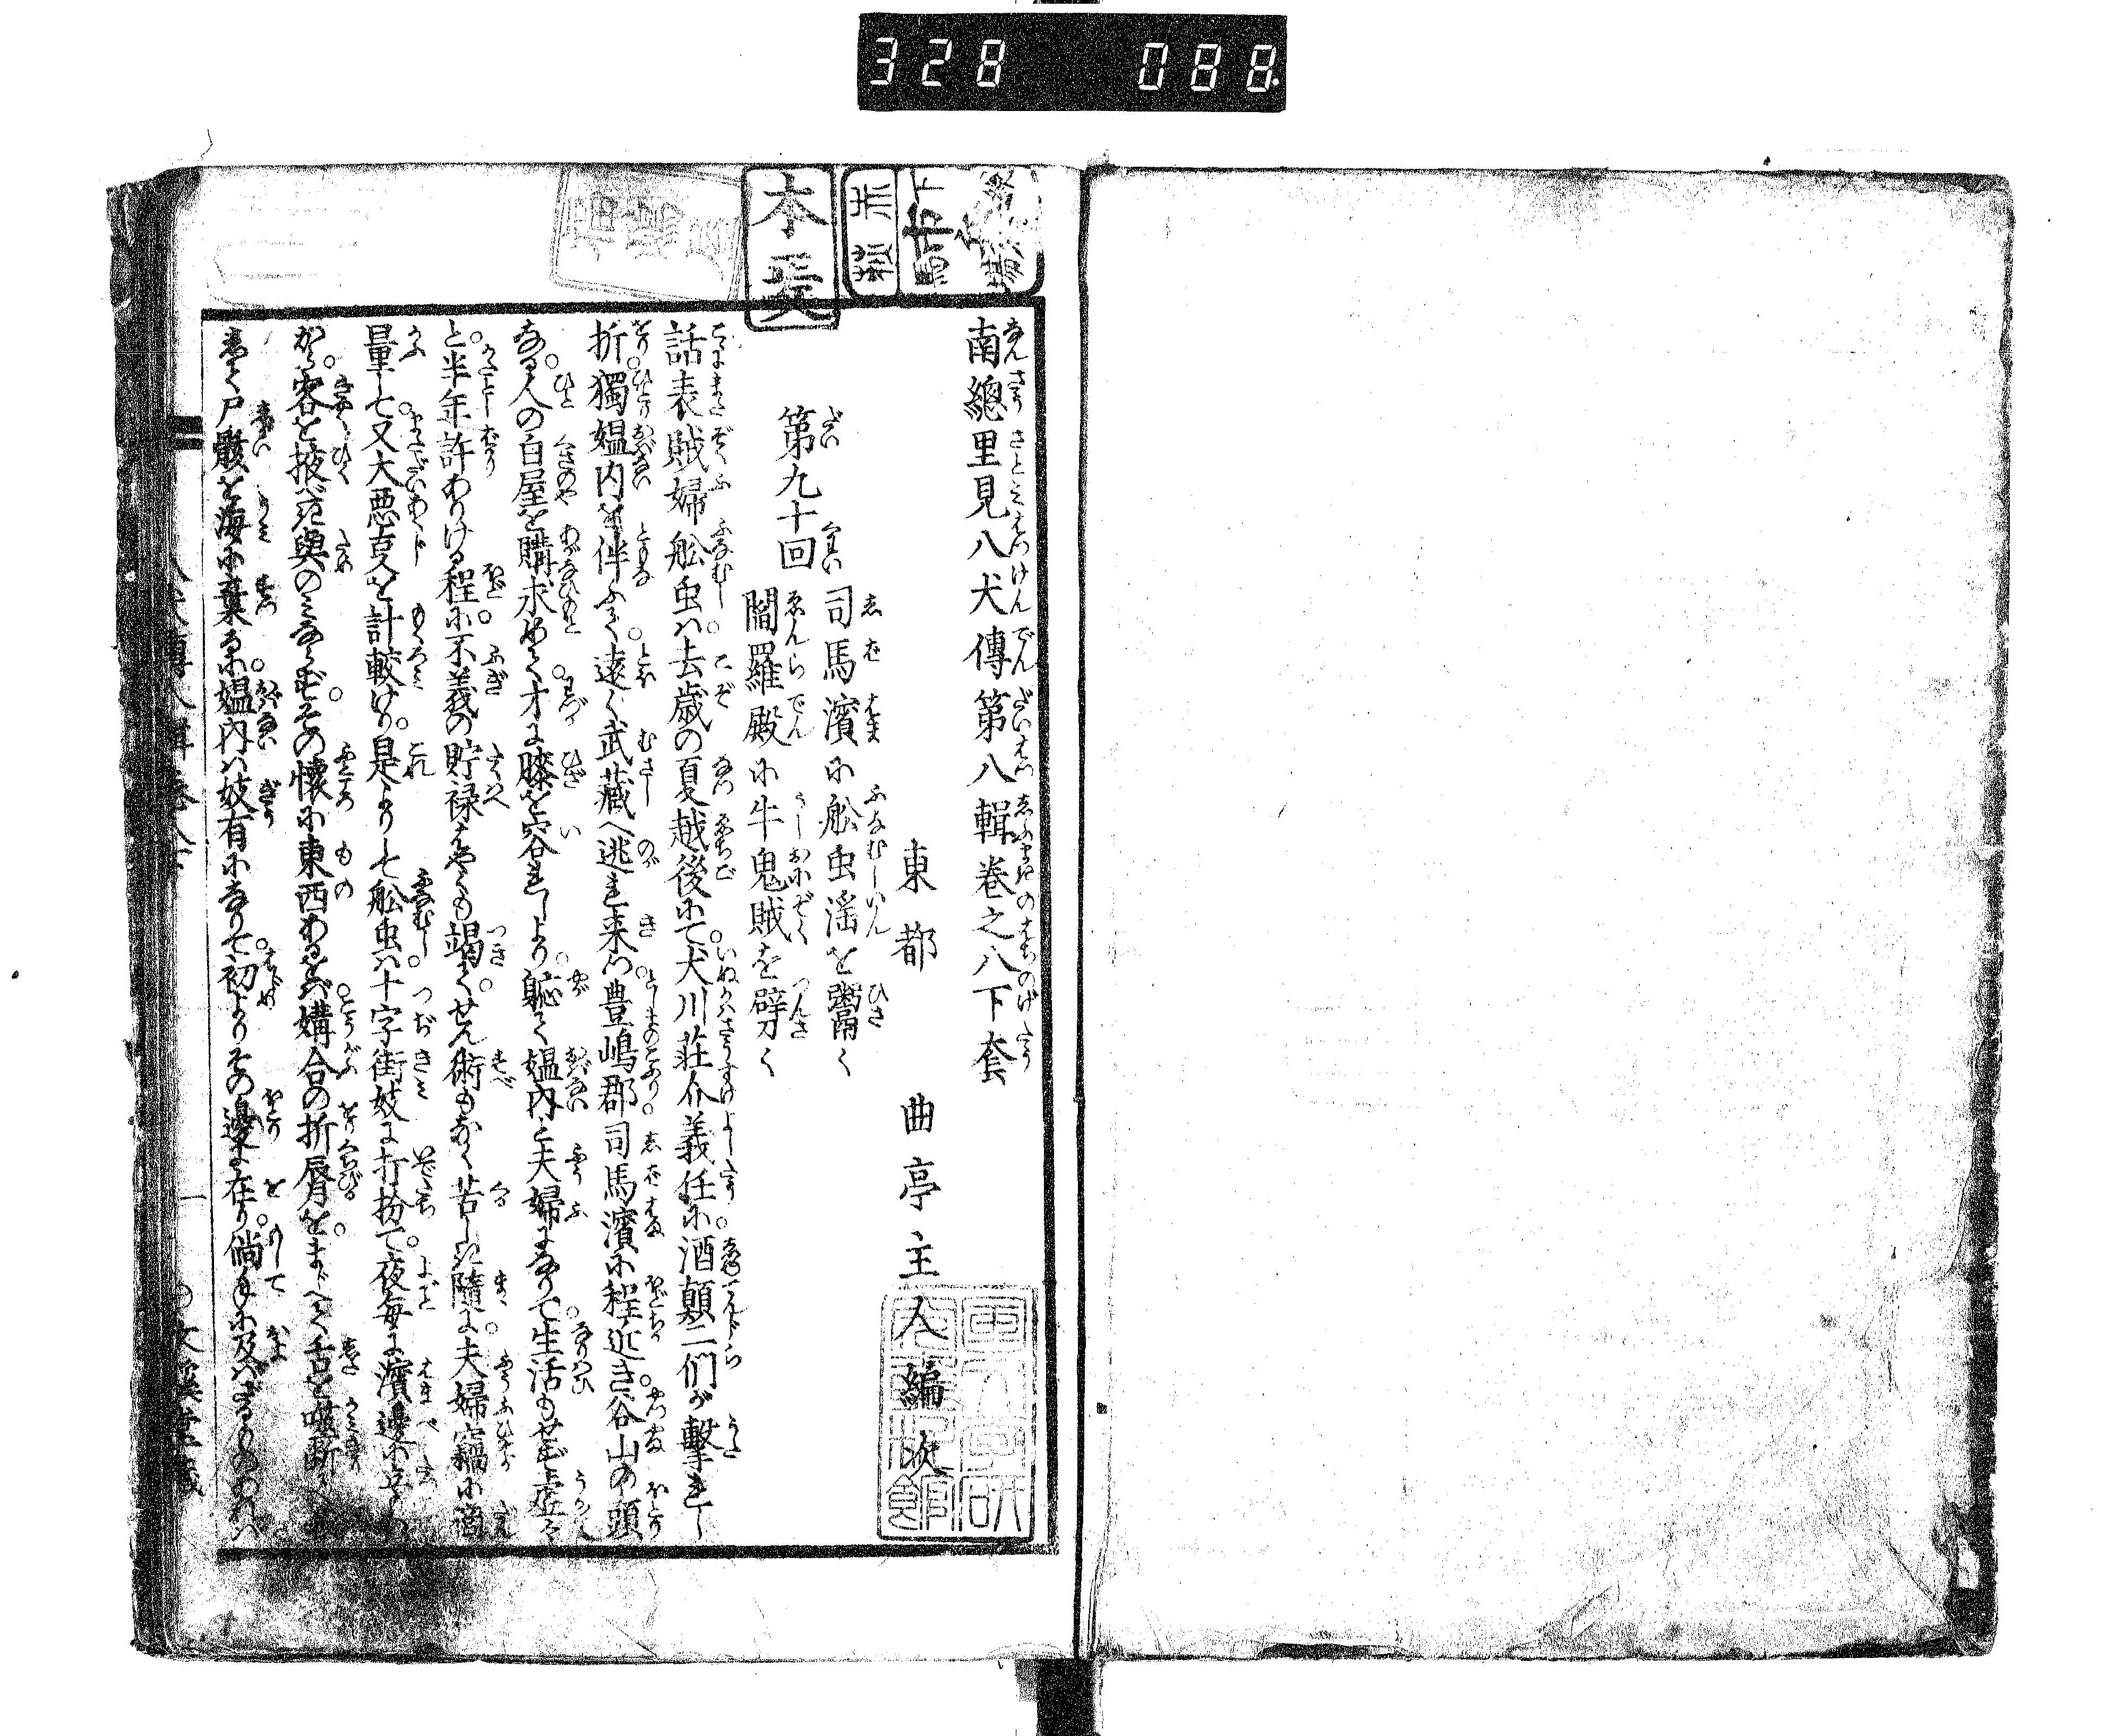 328 088
本
南總里見八犬傳第八輯巻之八下套
東都 曲亭主人編次
第九十回
司馬濱に舩虫淫を鬻く
閻羅殿に牛鬼賊を劈く
話表賊婦舩虫ハ去歳の夏越後にて。犬川荘介義任に酒顛二們が撃れし
折。獨媼内を伴ふて。遠く武藏へ逃れ来つ。豊嶋郡。司馬濱に程近き。谷山の頭
なる。人の白屋を購求めて。才に膝を容れしより。軈て媼内と夫婦になりて。生活もせず虚々
と。半年許ありける程に。不義の貯禄はやくも竭て。せん術もなく苦しき隨に。夫婦竊に商
量しセ又大悪㕝を計較けり。是よりしセ舩虫ハ。十字街妓に打扮て。夜毎に濱邉に立
から。客を挨べき與のミならず。その懐に東西あるをバ。媾合の折唇を。まじへて舌を噬断り
まして尸骸を海に棄るに。媼内ハ妓有になりて。初よりその邊に在り。倘手に及バざるものあれバ